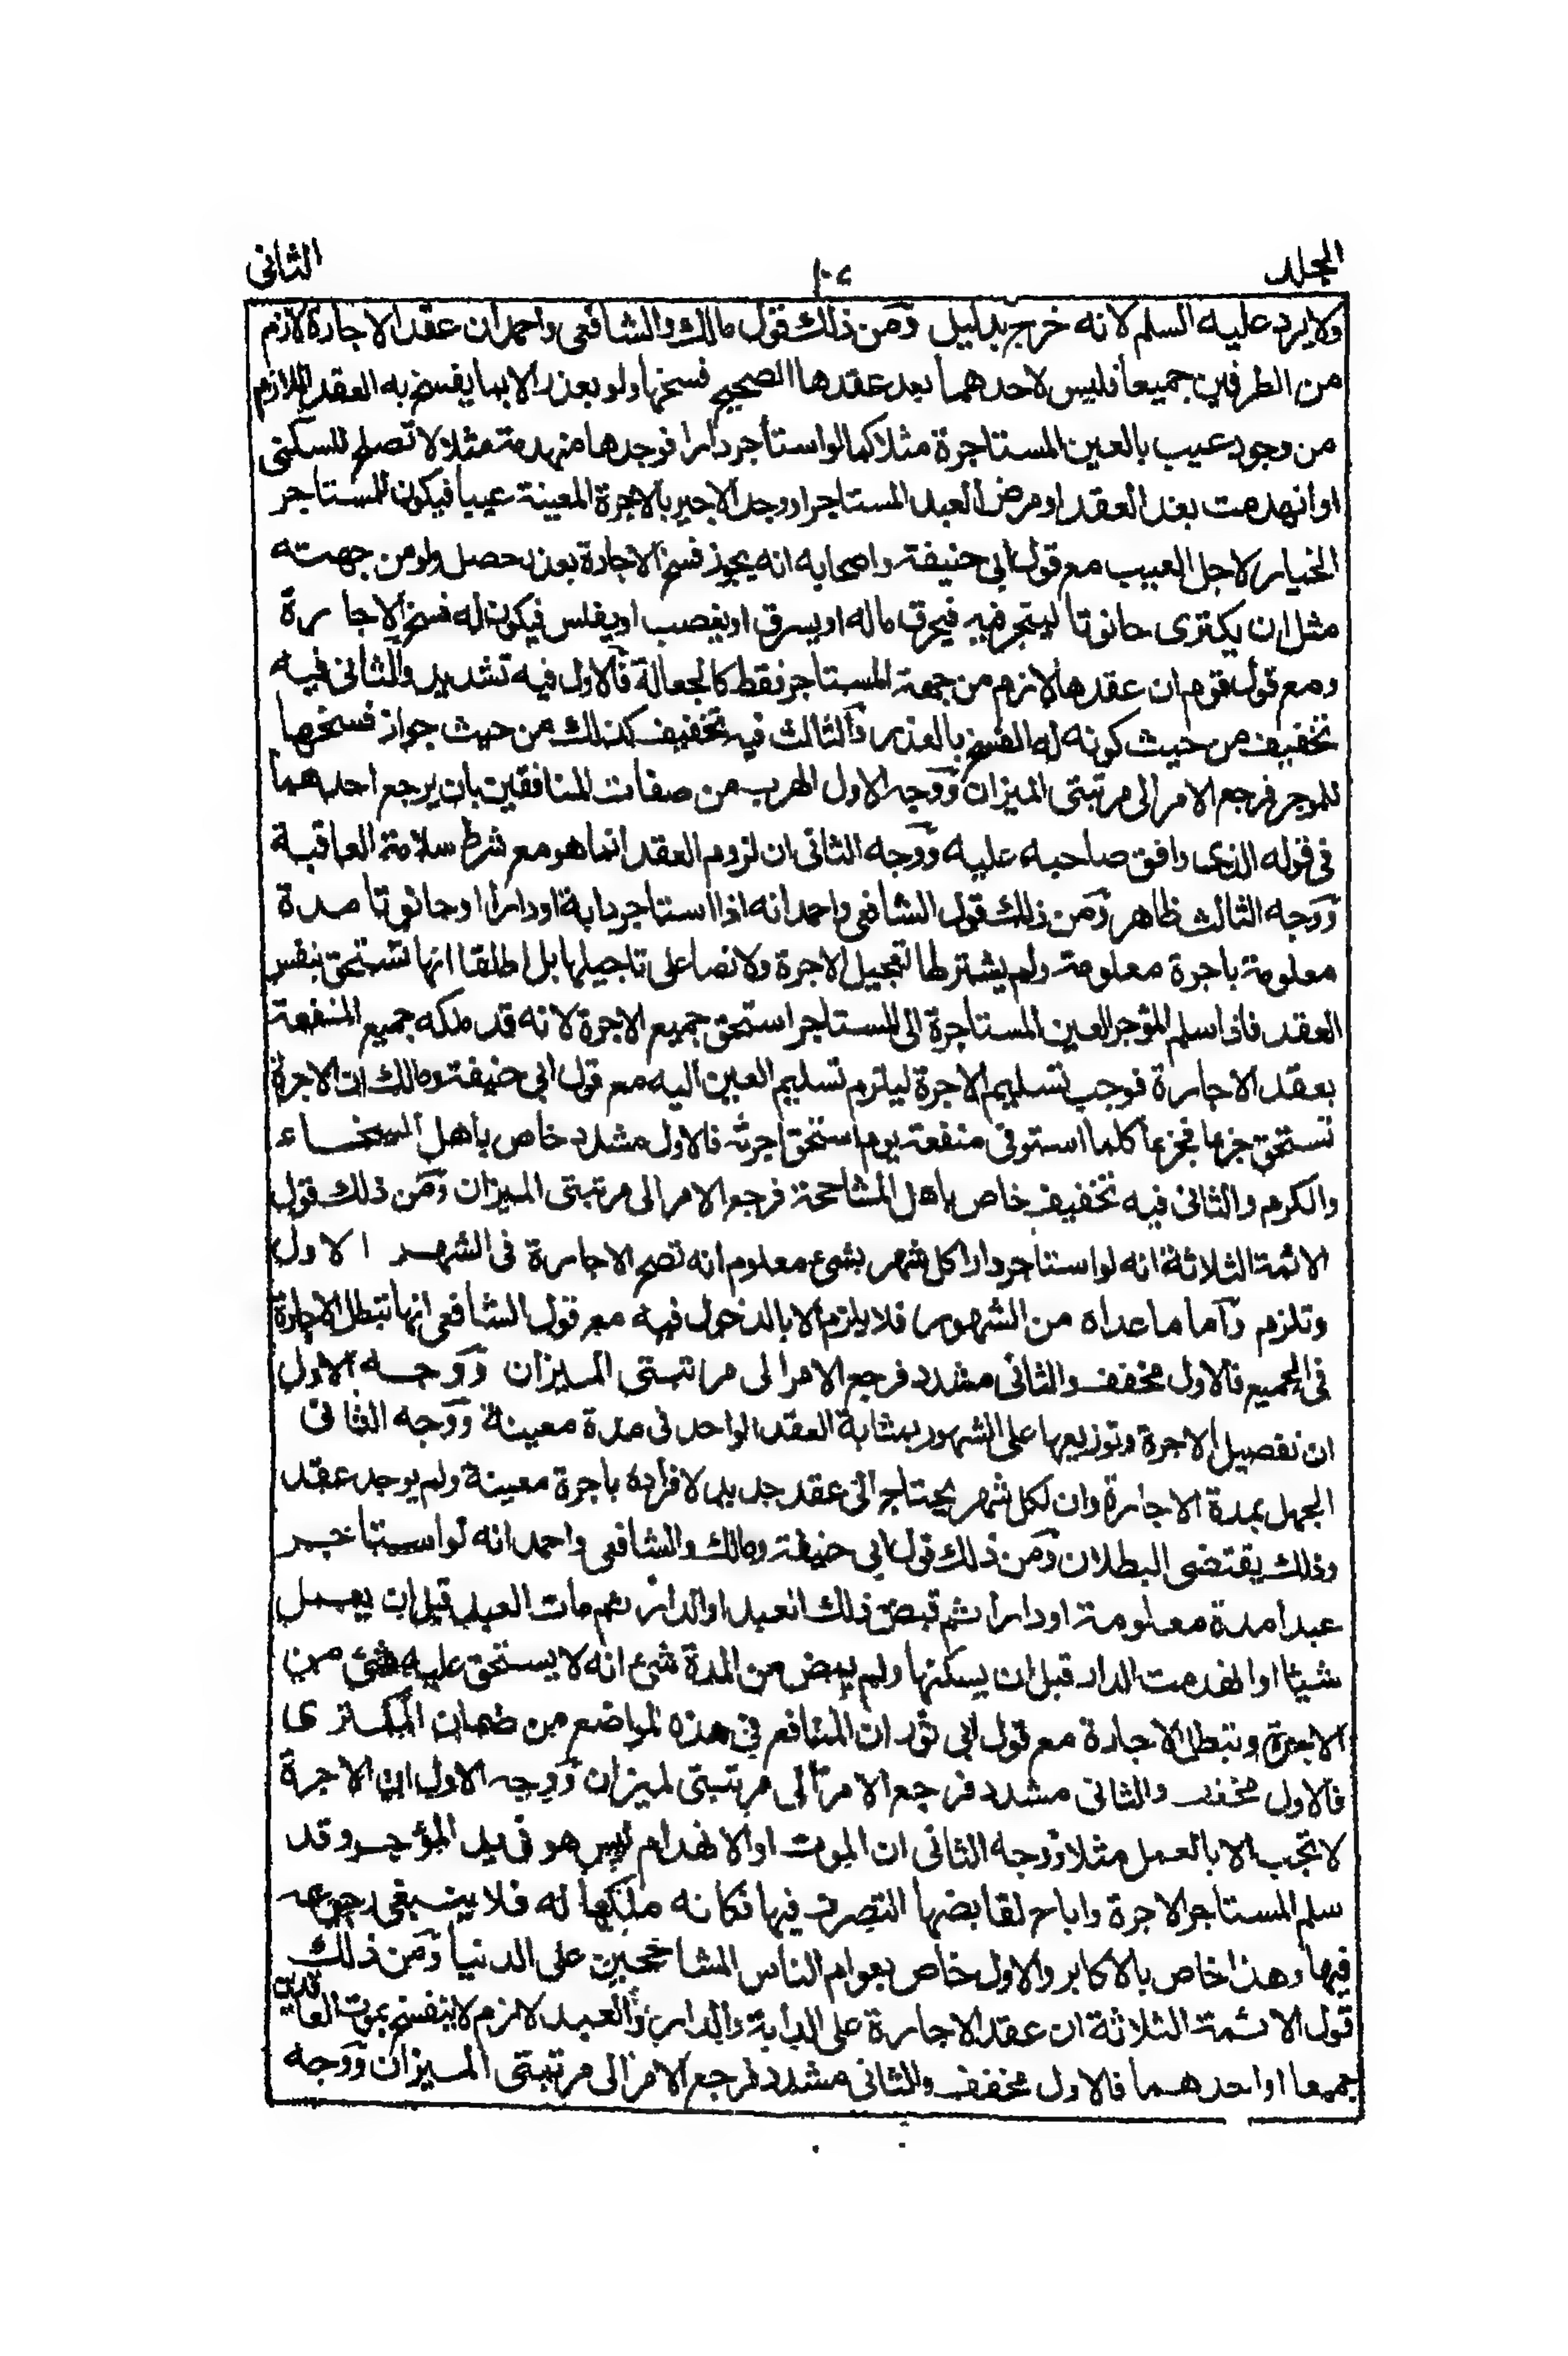 المجلد ١٠٤ الثانى
ولا يرد عليه السلم لانه خرج بدليل ومن ذلك قول مالك والشافعى واحمد ان عقد الاجارة لازم
من الطرفين جميعا فليس لاحدهما بعد عقدها الصحيح فسخها ولو بعذر الا بما يفسخ به العقد اللازم
من وجود عيب بالعين المستاجرة مثلا كما لو استأجر دارا فوجدها منهدمة مثلا لا تصلح للسكنى
او انهدمت بعد العقد او مرض العبد المستاجر او وجد الاجير بالاجرة المعينة عيبا فيكون للمستاجر
الخيار لاجل العيب مع قول ابى حنيفة واصحابه انه يجوز فسخ الاجارة بعذر حصل ولو من جهته
مثل ان يكترى حانوتا ليتجر فيه فيحرق ماله او يسرق او يغصب او يفلس فيكون له فسخ الاجارة
ومع قول قوم ان عقدها لازم من جهة المستاجر فقط كالجعالة فالاول فيه تشديد والثانى فيه
تخفيف من حيث كونه له الفسخ بالعذر والثالث فيه تخفيف كذلك من حيث جواز فسخها
للموجر فرجع الامر الى مرتبتى الميزان ووجه الاول الهرب من صفات المنافقين بان يرجع احدهما
فى قوله الذى وافق صاحبه عليه ووجه الثانى ان لزوم العقد انما هو مع شرط سلامة العاقبة
ووجه الثالث ظاهر ومن ذلك قول الشافعى واحمد انه اذا استاجر دابة او دارا او حانوتا مدة
معلومة باجرة معلومة ولم يشترطا تعجيل الاجرة ولا نصا على تاجيلها بل اطلقا انها تستحق بنفس
العقد فاذا سلم المؤجر العين المستاجرة الى المستاجر استحق جميع الاجرة لانه قد ملكه جميع المنفعة
بعقد الاجارة فوجب تسليم الاجرة ليلزم تسليم العين اليه مع قول ابى حنيفة ومالك ان الاجرة
تستحق جزءا فجزءا كلما استوفى منفعة يوم استحق اجرته فالاول مشدد خاص باهل السخاء
والكرم والثانى فيه تخفيف خاص باهل المشاححة فرجع الامر الى مرتبتى الميزان ومن ذلك قول
الائمة الثلاثة انه لو استاجر دارا كل شهر بشئ معلوم انه تصح الاجارة فى الشهر الاول
وتلزم واما ما عداه من الشهور فلا يلزم الا بالدخول فيه مع قول الشافعى انها تبطل الاجارة
فى الجميع فالاول مخفف والثانى مشدد فرجع الامر الى مرتبتى الميزان ووجه الاول
ان تفصيل الاجرة وتوزيعها على الشهور بمثابة العقد الواحد فى مدة معينة ووجه الثانى
الجهل بمدة الاجارة وان لكل شهر يحتاج الى عقد جديد لافراده باجرة معينة ولم يوجد عقد
وذلك يقتضى البطلان ومن ذلك قول ابى حنيفة ومالك والشافعى واحمد انه لو استاجر
عبدا مدة معلومة او دارا ثم قبض ذلك العبد او الدار ثم مات العبد قبل ان يعمل
شيئا او انهدمت الدار قبل ان يسكنها ولم يمض من المدة شئ انه لا يستحق عليه شئ من
الاجرة وتبطل الاجارة مع قول ابى ثور ان المنافع فى هذه المواضع من ضمان المكترى
فالاول مخفف والثانى مشدد فرجع الامر الى مرتبتى لميزان ووجه الاول ان الاجرة
لا تجب الا بالعمل مثلا ووجه الثانى ان الموت او الانهدام ليس هو فى يد المؤجر وقد
سلم المستاجر الاجرة واباح لقابضها التصرف فيها فكانه ملكها له فلا ينبغى رجوعه
فيها وهذا خاص بالاكابر والاول خاص بعوام الناس المشاححين على الدنيا ومن ذلك
قول الائمة الثلاثة ان عقد الاجارة على الدابة والدار والعبد لازم لا ينفسخ بموت العاقدين
جميعا او احدهما فالاول مخفف والثانى مشدد فرجع الامر الى مرتبتى الميزان ووجه